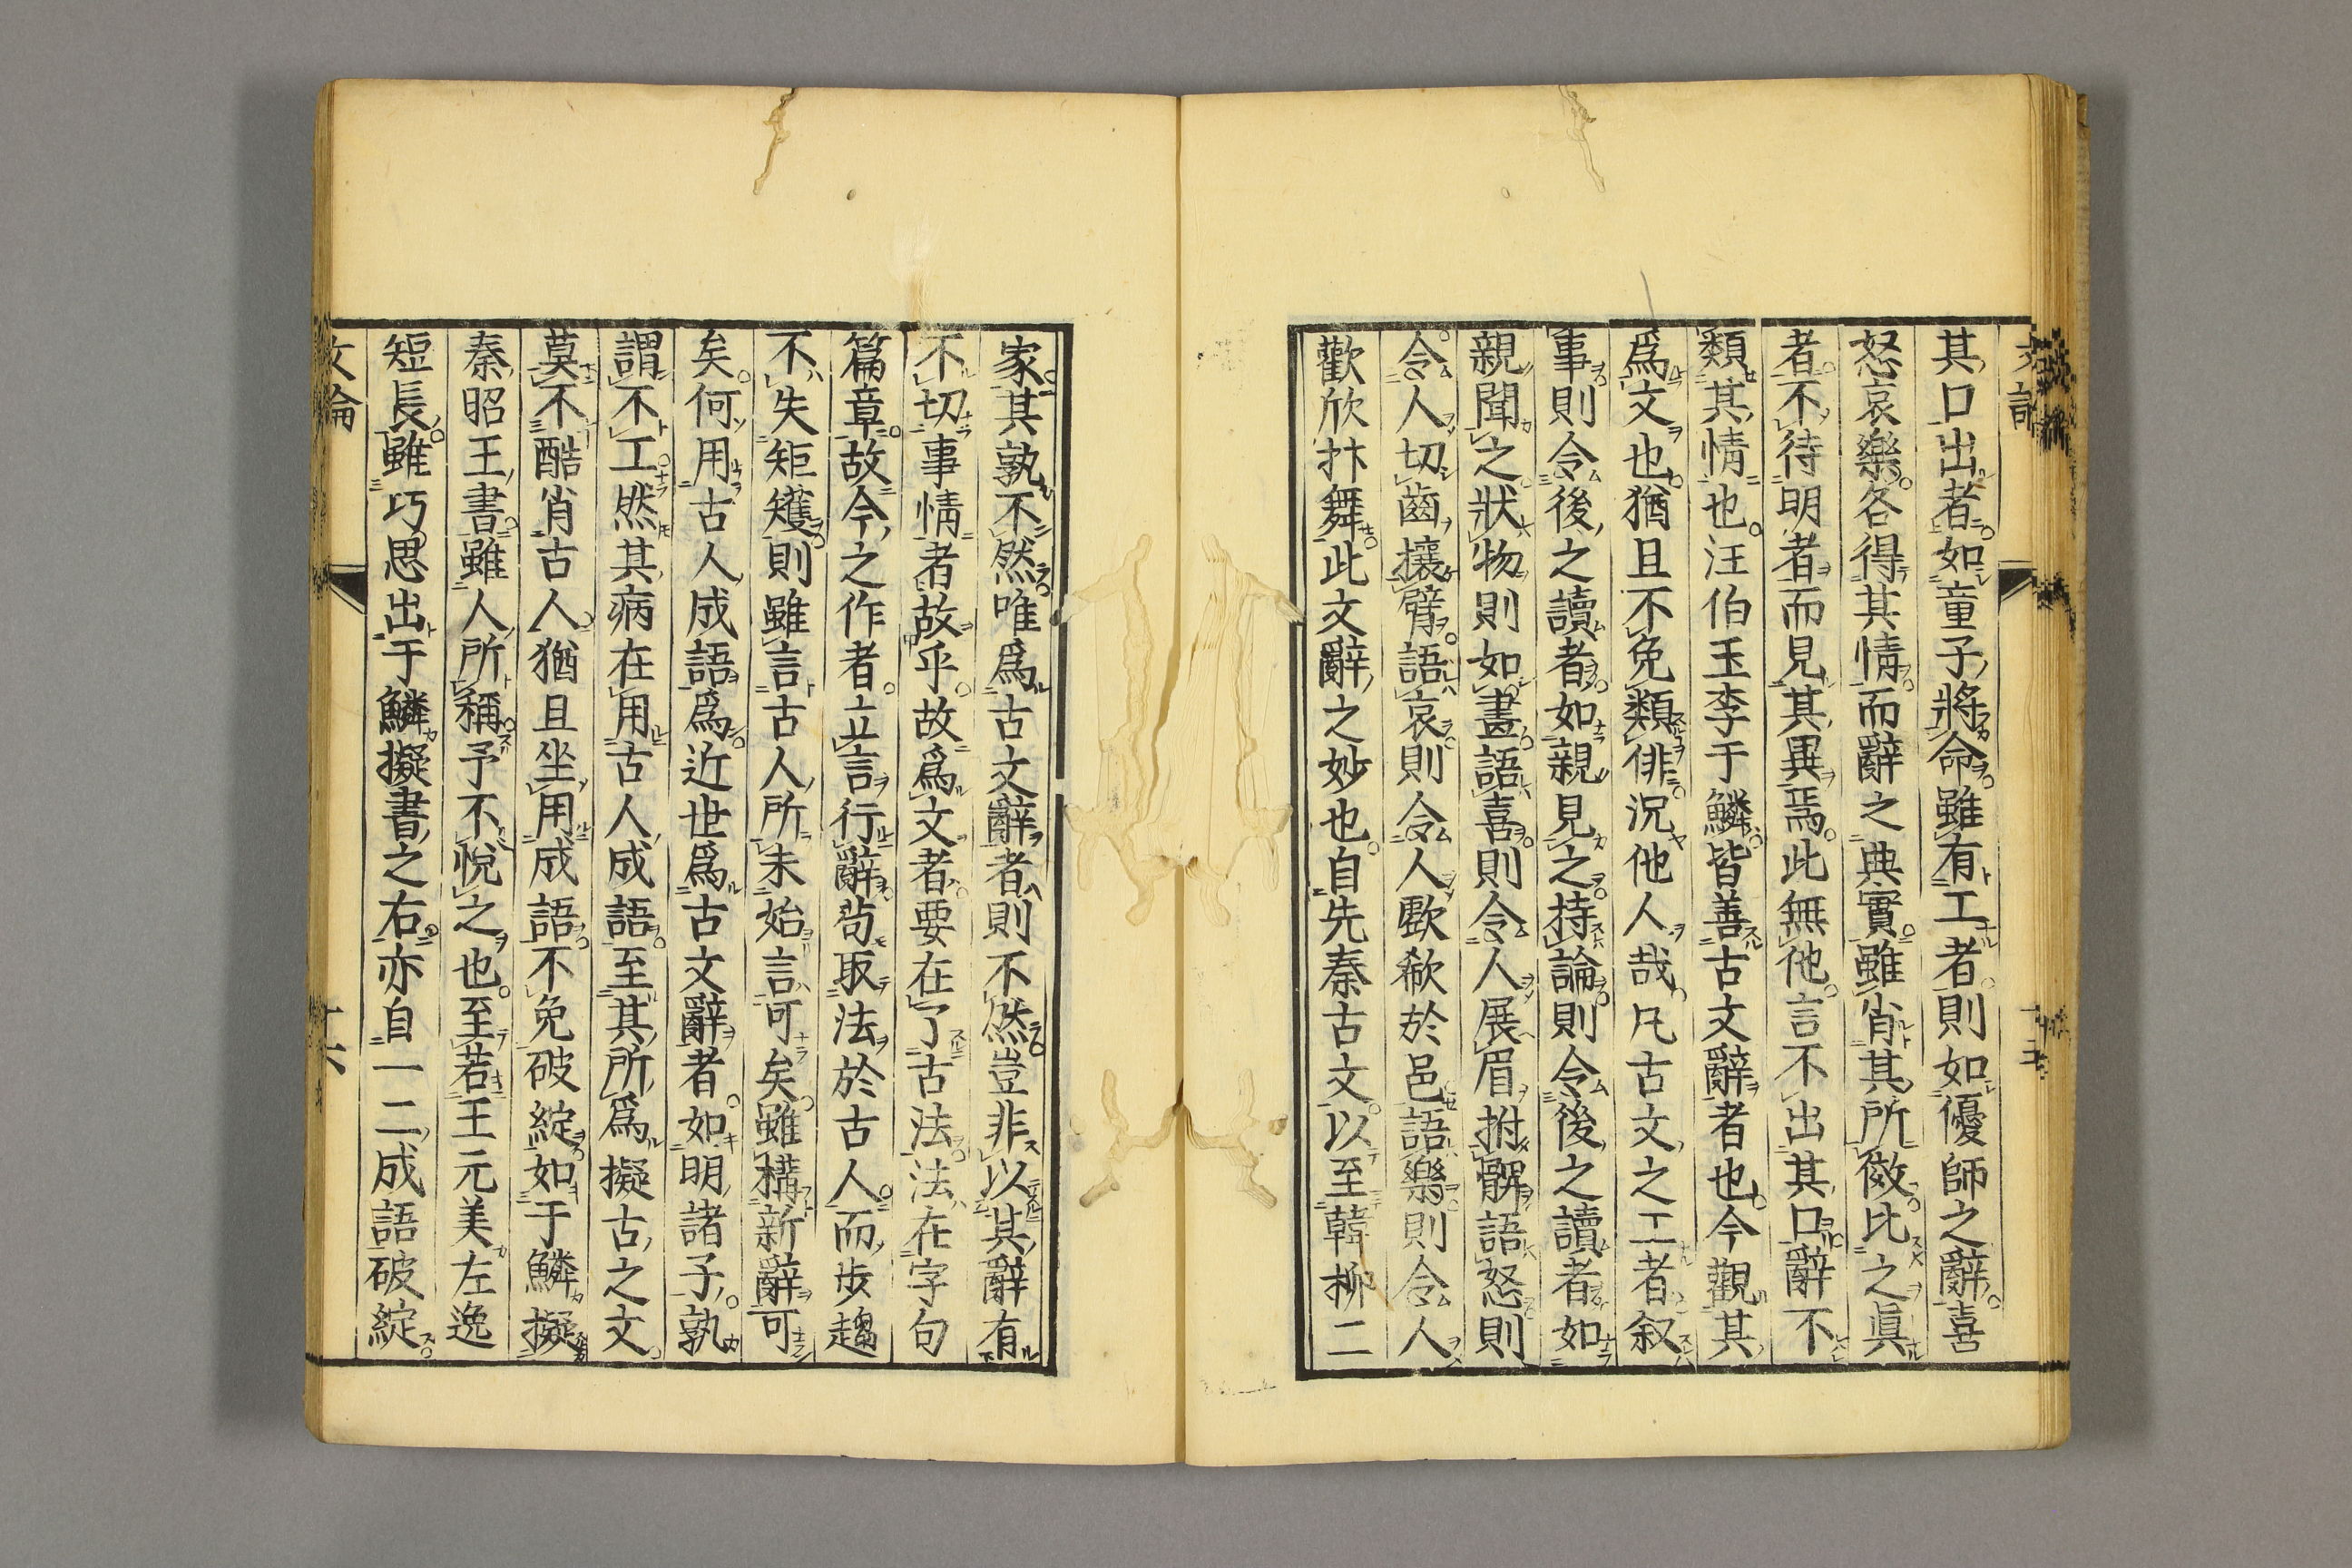 其口出者如童子將命雖有工者則如優師之辭喜
怒哀樂各得其情而辭之典實雖肖其所傚比之眞
者不待明者而見其異焉此無他言不出其口辭不
類其情也汪伯玉李于鱗皆善古文辭者也今觀其
爲文也猶且不免類俳況他人哉凡古文之工者叙
事則令後之讀者如親見之持論則令後之讀者如
親聞之狀物則如畫語喜則令人展眉拊髀語怒則
令人切齒攘臂語哀則令人歔欷於邑語樂則令人
歡欣抃舞此文辭之妙也自先秦古文以至韓柳二
家其孰不然唯爲古文辭者則不然豈非以其辭有
不切事情者故乎故爲文者要在了古法法在字句
篇章故今之作者立言行辭苟取法於古人而步趨
不失矩矱則雖言古人所未始言可矣雖搆新辭可
矣何用古人成語爲近世爲古文辭者如明諸子孰
謂不工然其病在用古人成語至其所爲擬古之文
莫不酷肖古人猶且坐用成語不免破綻如于鱗擬
秦昭王書雖人所稱予不悅之也至若王元美左逸
短長雖巧思出于鱗擬書之右亦自一二成語破綻
文論
十六